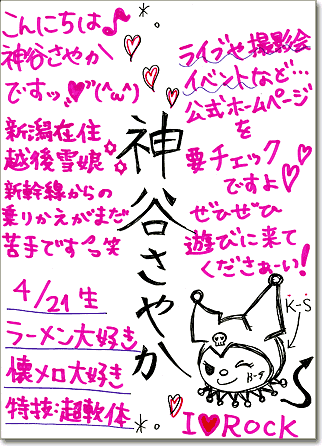 こんにちは♪
神谷さやか
ですッ♥"(^ω^)
新潟在住
越後雪娘
新幹線からの
乗りかえがまだ
苦手です笑
4/21生
ラーメン大好き
懐メロ大好き
特技・超軟体
神谷さやか
ライブや撮影会
イベントなど…
公式ホームページ
を
要チェック
ですよ♡
ぜひぜひ
遊びに来て
くださぁーい!
K-S
K-S
I♥ROCK